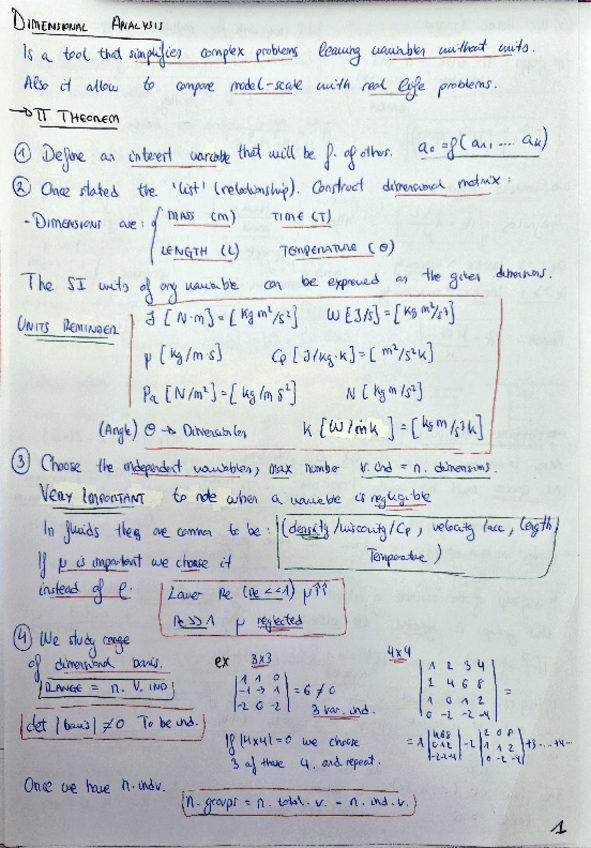 DIMENSIONAL ANALYSIS
Is a tool that simplifies complex problems leaving variables without units.
Also it allow to compare model-scale with real life problems.
→ Π THEOREM
① Define an interest variable that will be f. of others. a₀ = f(a₁, ... aₖ)
② Once stated the 'list' (relationship). Construct dimensional matrix:
- DIMENSIONS are: { MASS (M) TIME (T)
LENGTH (L) TEMPERATURE (Θ)
The SI units of any variable can be expressed as the given dimensions.
UNITS REMINDER
J [N·m] = [kg m²/s²] W [J/s] = [kg m²/s³]
μ [kg/m·s] Cp [J/kg·K] = [m²/s²K]
Pa [N/m²] = [kg/m s²] N [kg m/s²]
(Angle) Θ → Dimensionless K [W/mK] = [kg m/s³K]
③ Choose the independent variables, max number v. ind = n. dimensions.
VERY IMPORTANT to note when a variable is negligible
In fluids they are common to be: (density/viscosity/Cp, velocity/acc, length,
Temperature)
If μ is important we choose it
instead of ρ.
Lower Re (Re<<1) μ↑↑
Re>>1 μ neglected
④ We study range
of dimensional basis.
RANGE = n. V. IND
det |basis| ≠ 0 To be ind.
ex 3x3
|1 1 0|
|-1 -3 1| = 6 ≠ 0
|-2 0 -2|
3 var. ind.
4x4
|1 2 3 4|
|2 4 6 8|
|1 0 1 2| =
|0 -2 -2 -4|
If |4x4| = 0 we choose
3 of those 4, and repeat.
= 1 |4 6 8| - 2 |2 6 8| + 3 ... + 4 ...
|0 1 2| |1 1 2|
|-2 -2 -4| |0 -2 -4|
Once we have n. indv.
n. groups = n. total. v. - n. ind. v.
1